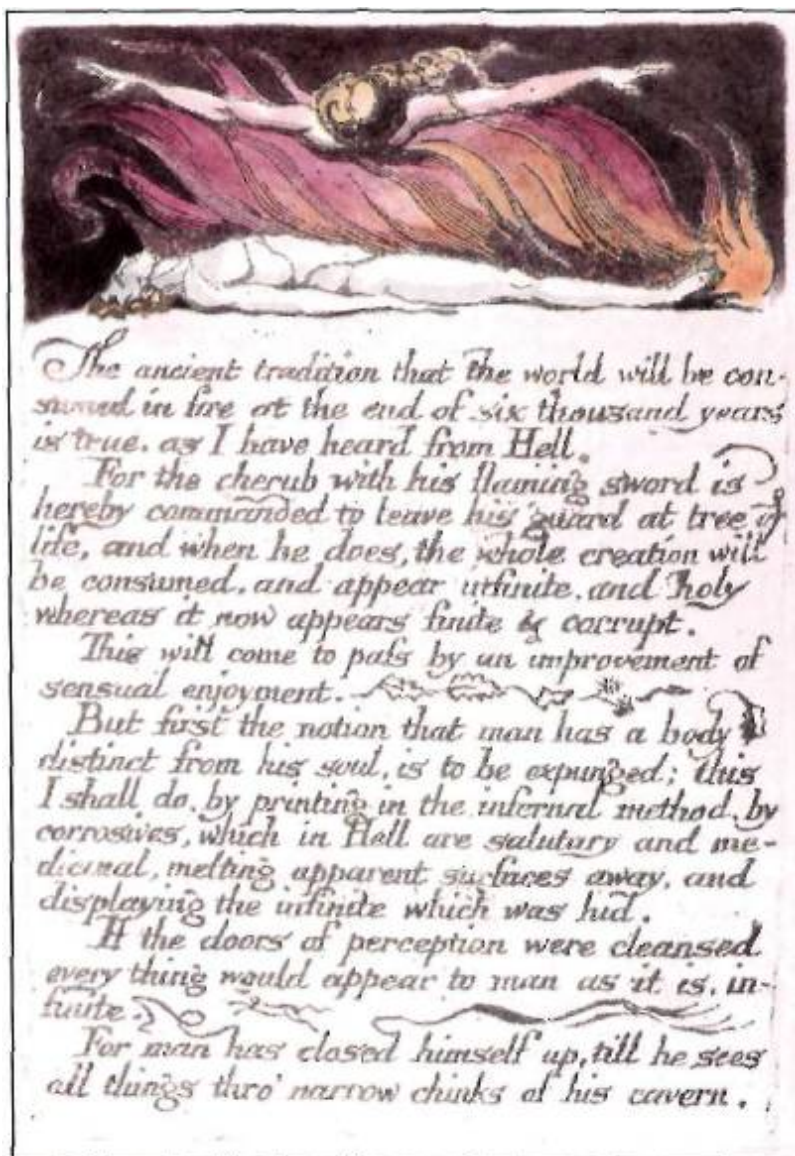 The ancient tradition that the world will be con-
sumed in fire at the end of six thousand years
is true. as I have heard from Hell.
For the cherub with his flaming sword is
hereby commanded to leave his guard at tree of
life, and when he does, the whole creation will
be consumed. and appear infinite. and holy
whereas it now appears finite & corrupt.
This will come to paſs by an improvement of
sensual enjoyment.
But first the notion that man has a body
distinct from his soul, is to be expunged; this
I shall do, by printing in the infernal method, by
corrosives, which in Hell are salutary and me-
dicinal, melting apparent surfaces away, and
displaying the infinite which was hid.
If the doors of perception were cleansed
every thing would appear to man as it is, in-
finite.
For man has closed himself up, till he sees
all things thro' narrow chinks of his cavern.